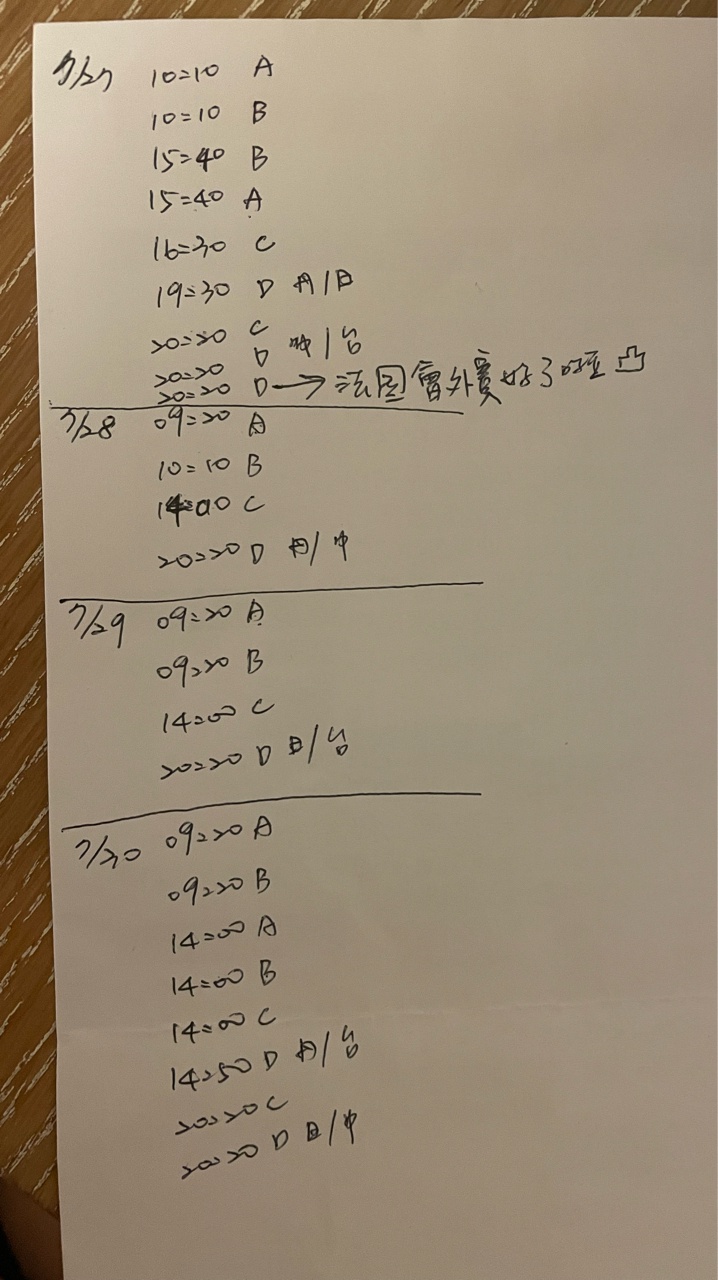 7/27 10:10 A
10:10 B
15:40 B
15:40 A
16:30 C
19:30 D A/B
20:20 C
20:20 D /台
20:20 D → 法国會外賽好了 凸
7/28 09:20 A
10:10 B
14:00 C
20:20 D 日/中
7/29 09:20 A
09:20 B
14:00 C
20:20 D 日/台
7/30 09:20 A
09:20 B
14:00 A
14:00 B
14:00 C
14:50 D A/台
20:20 C
20:20 D 日/中